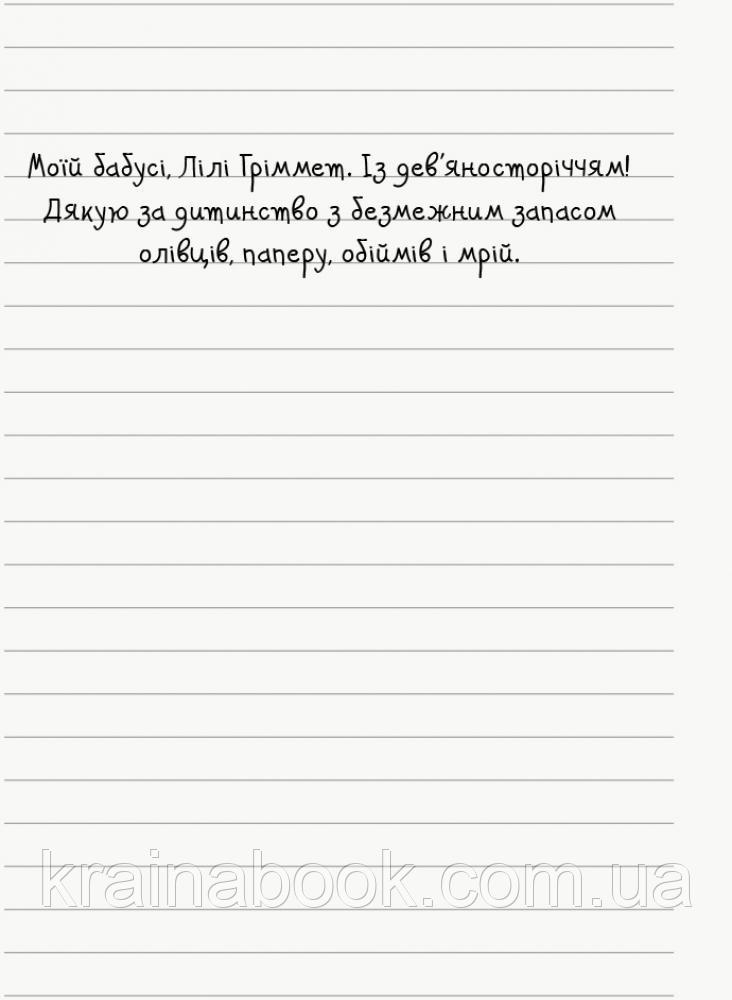 Моїй бабусі, Лілі Гріммет. Із дев'яносторіччям!
Дякую за дитинство з безмежним запасом
олівців, паперу, обіймів і мрій.
krainabook.com.ua